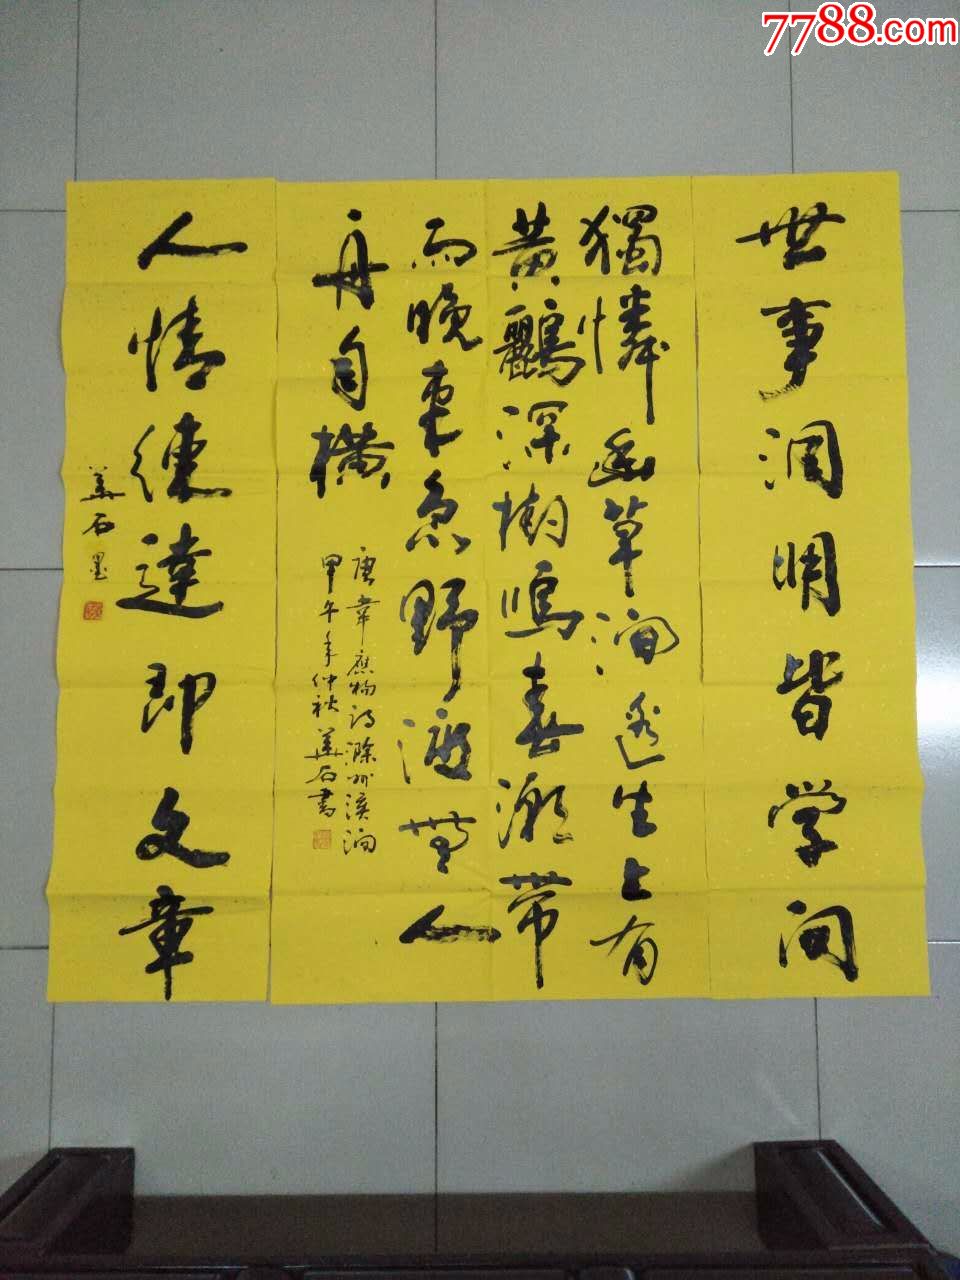 7788.com
世事洞明皆学问
獨憐幽草涧邊生上有
黄鸝深樹鳴春潮带
雨晚来急野渡無人
舟自横
唐韋應物诗滁州溪涧
甲午年仲秋 石書
人情練達即文章
石墨